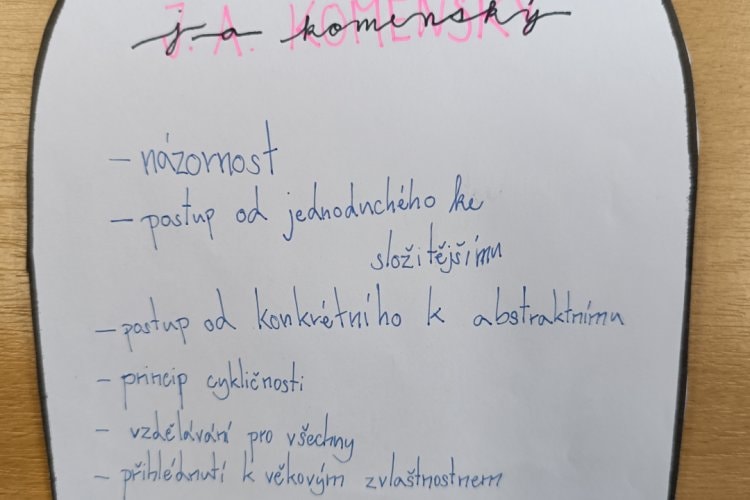 J. A. KOMENSKÝ
j a komenský
– názornost
– postup od jednoduchého ke
složitějšímu
– postup od konkrétního k abstraktnímu
– princip cykličnosti
– vzdělávání pro všechny
– přihlédnutí k věkovým zvlaštnostnem